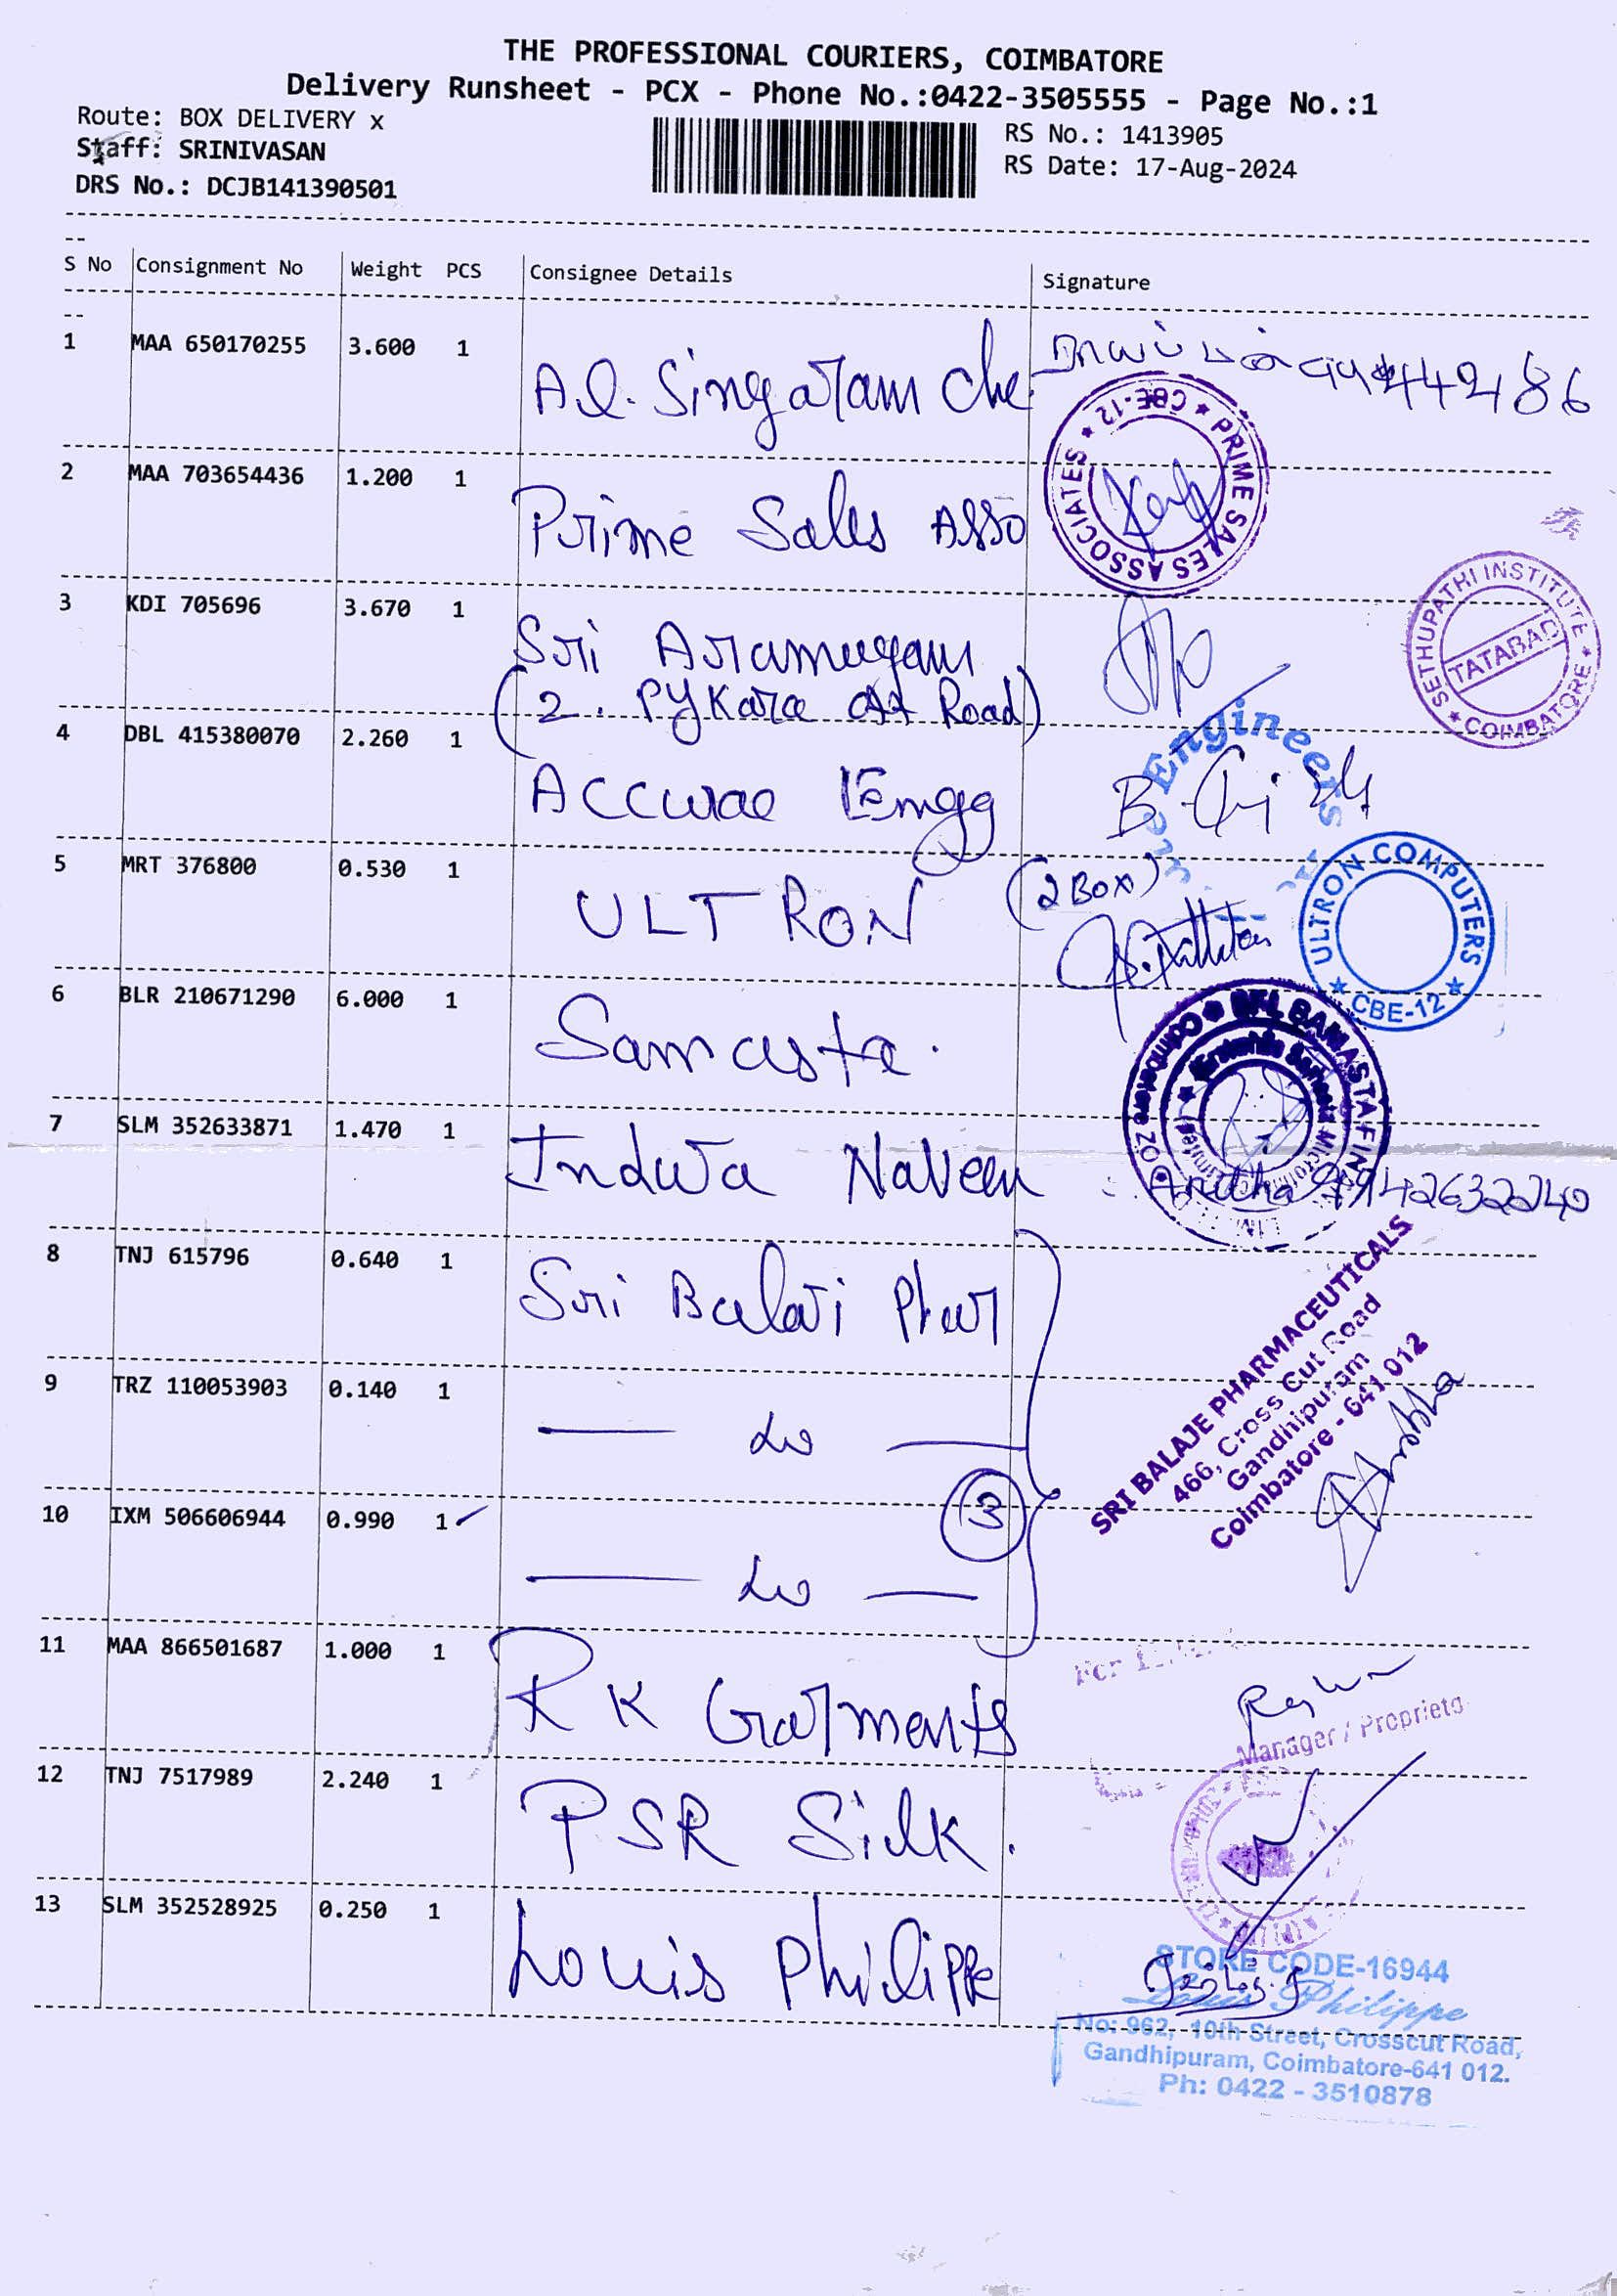 THE PROFESSIONAL COURIERS, COIMBATORE
Delivery Runsheet - PCX - Phone No.:0422-3505555 - Page No.:1
Route: BOX DELIVERY x
RS No.: 1413905
Staff: SRINIVASAN
RS Date: 17-Aug-2024
DRS No.: DCJB141390501
S No Consignment No Weight PCS Consignee Details Signature
1 MAA 650170255 3.600 1 Al. Singaram Che
PRIME SALES ASSOCIATES ★ CBE-12 ★
2 MAA 703654436 1.200 1 Prime Sales Asso
SETHUPATHI INSTITUTE ★ COIMBATORE ★
TATABAD
3 KDI 705696 3.670 1 Sri Aramugam
(2. Pykara Road)
4 DBL 415380070 2.260 1 Accurae Emgg
Engineers
5 MRT 376800 0.530 1 ULTRON (2 BOX)
ULTRON COMPUTERS ★ CBE-12 ★
6 BLR 210671290 6.000 1 Samasta.
7 SLM 352633871 1.470 1 Induja Naveen Anitha
8 TNJ 615796 0.640 1 Sri Balaji Phar
SRI BALAJE PHARMACEUTICALS
466, Cross Cut Road
Gandhipuram
Coimbatore - 641 012
9 TRZ 110053903 0.140 1 — do —
3
10 IXM 506606944 0.990 1 — do —
11 MAA 866501687 1.000 1 RK Garments
For
Manager / Proprieto
12 TNJ 7517989 2.240 1 PSR Silk.
13 SLM 352528925 0.250 1 Louis Philippe
STORE CODE-16944
Louis Philippe
No: 962, 10th Street, Crosscut Road,
Gandhipuram, Coimbatore-641 012.
Ph: 0422 - 3510878